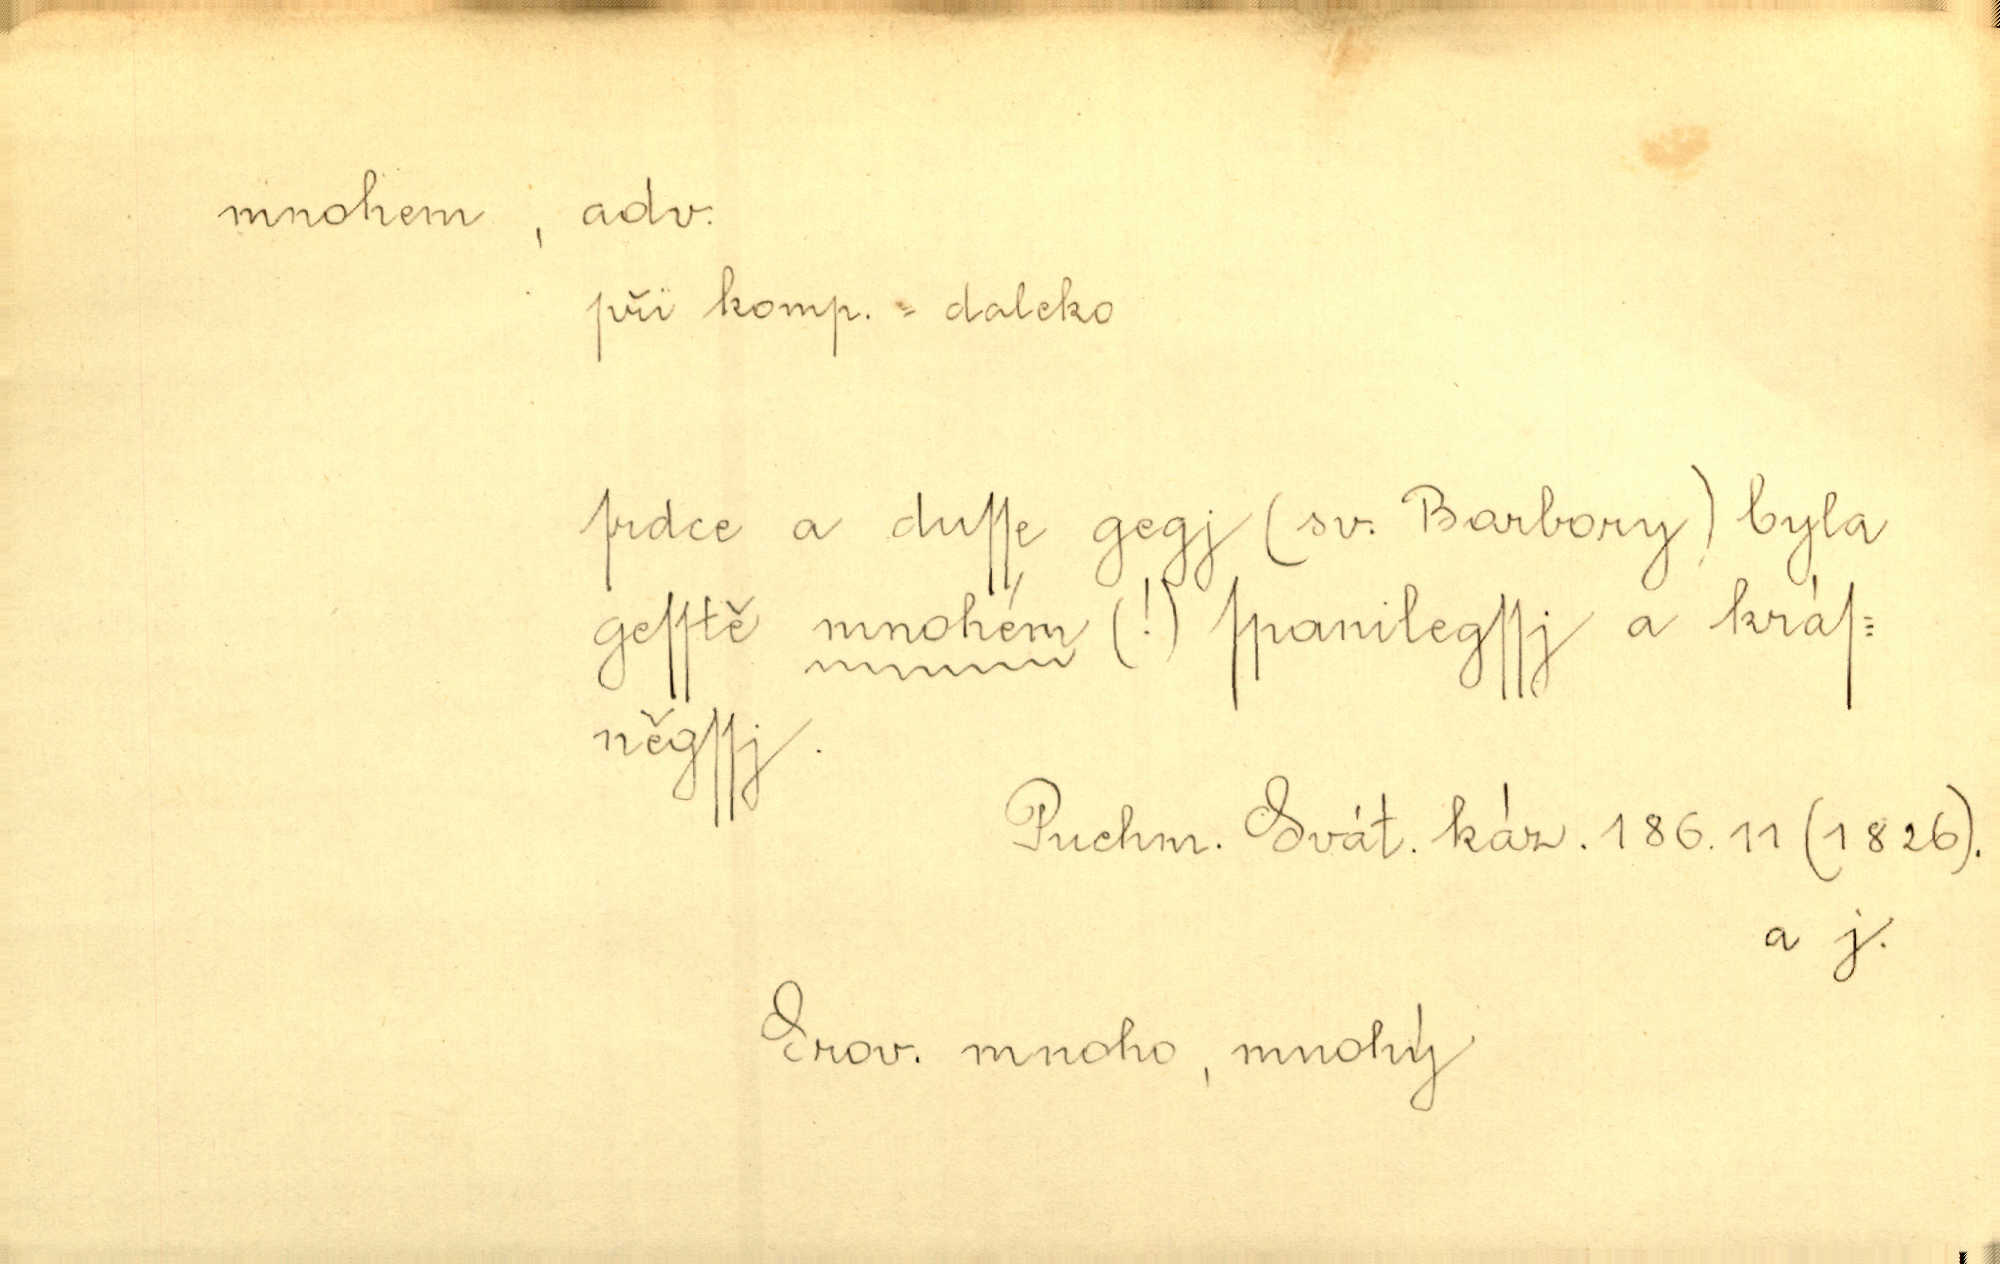 mnohem, adv.
při komp. = daleko
ſrdce a duſſe gegj (sv. Barbory) byla
geſſtě mnohém (!) ſpanilegſſj a kráſ=
něgſſj.
Puchm. Svát. káz. 186. 11 (1826).
a j.
Srov. mnoho, mnohý